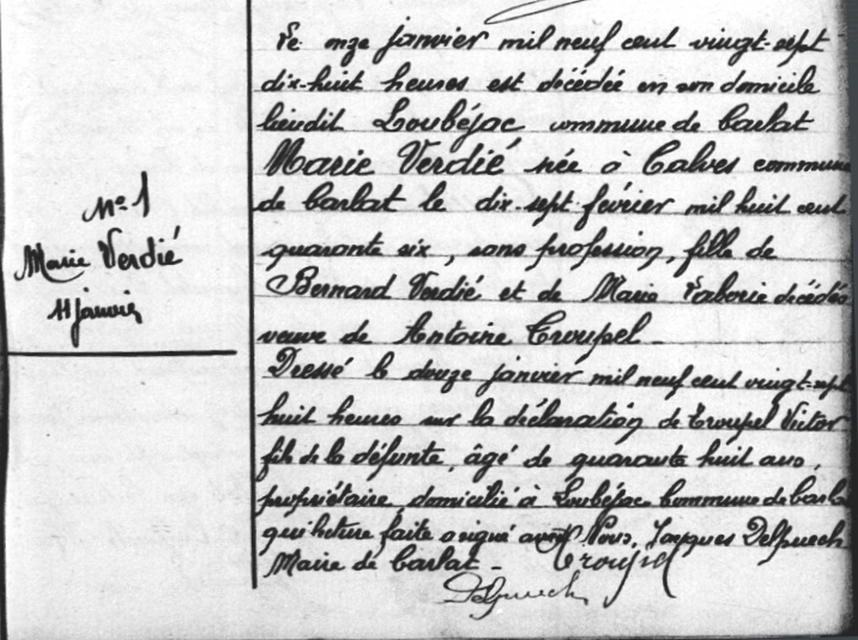 Nº 1
Marie Verdié
11 janvier
Le onze janvier mil neuf cent vingt-sept
dix-huit heures est décédée en son domicile
lieudit Loubéjac commune de Carlat
Marie Verdié née à Calves commune
de Carlat le dix-sept février mil huit cent
quarante six, sans profession, fille de
Bernard Verdié et de Marie Laborie décédés
veuve de Antoine Troupel -
Dressé le douze janvier mil neuf cent vingt-sept
huit heures sur la déclaration de Troupel Victor
fils de la défunte, âgé de quarante huit ans,
propriétaire domicilié à Loubéjac commune de Carlat
qui lecture faite a signé avec Nous, Jacques Delpuech
Maire de Carlat - Troupel
Delpuech